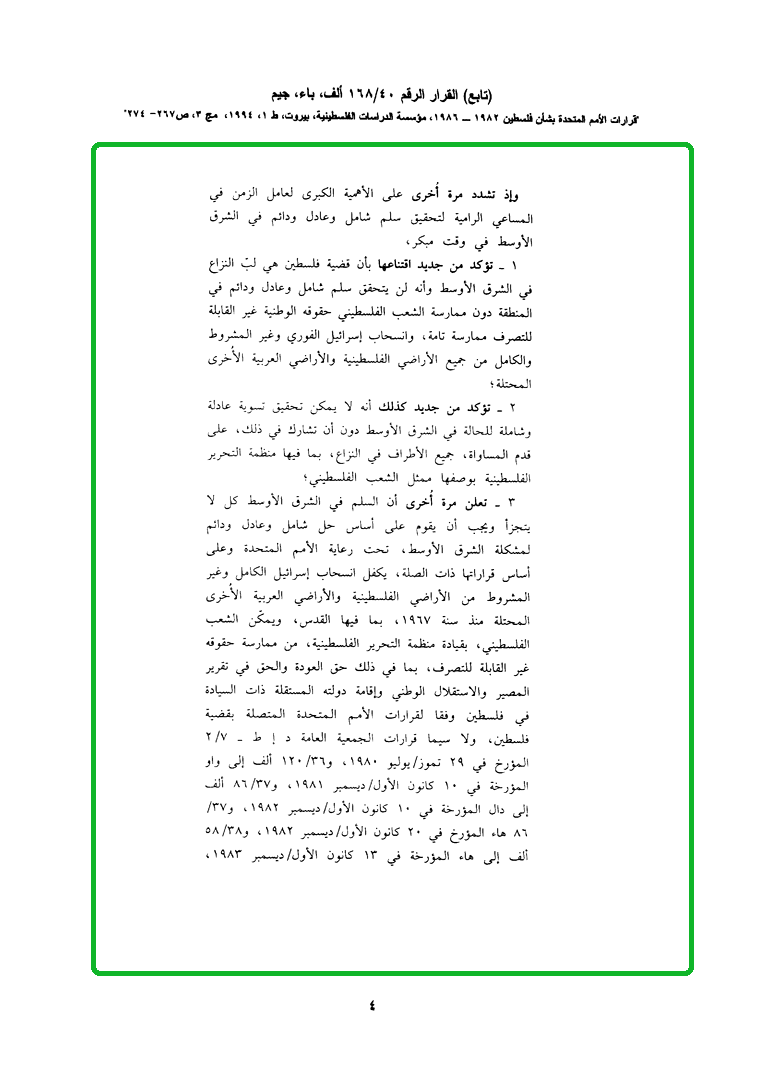 (تابع) القرار الرقم ١٦٨/٤٠ ألف، باء، جيم
"قرارات الأمم المتحدة بشأن فلسطين ١٩٨٢ ــ ١٩٨٦، مؤسسة الدراسات الفلسطينية، بيروت، ط ١، ١٩٩٤، مج ٣، ص٢٦٧- ٢٧٤"
وإذ تشدد مرة أُخرى على الأهمية الكبرى لعامل الزمن في
المساعي الرامية لتحقيق سلم شامل وعادل ودائم في الشرق
الأوسط في وقت مبكر،
١ ـ تؤكد من جديد اقتناعها بأن قضية فلسطين هي لبّ النزاع
في الشرق الأوسط وأنه لن يتحقق سلم شامل وعادل ودائم في
المنطقة دون ممارسة الشعب الفلسطيني حقوقه الوطنية غير القابلة
للتصرف ممارسة تامة، وانسحاب إسرائيل الفوري وغير المشروط
والكامل من جميع الأراضي الفلسطينية والأراضي العربية الأُخرى
المحتلة؛
٢ ـ تؤكد من جديد كذلك أنه لا يمكن تحقيق تسوية عادلة
وشاملة للحالة في الشرق الأوسط دون أن تشارك في ذلك، على
قدم المساواة، جميع الأطراف في النزاع، بما فيها منظمة التحرير
الفلسطينية بوصفها ممثل الشعب الفلسطيني؛
٣ ـ تعلن مرة أُخرى أن السلم في الشرق الأوسط كل لا
يتجزأ ويجب أن يقوم على أساس حل شامل وعادل ودائم
لمشكلة الشرق الأوسط، تحت رعاية الأمم المتحدة وعلى
أساس قراراتها ذات الصلة، يكفل انسحاب إسرائيل الكامل وغير
المشروط من الأراضي الفلسطينية والأراضي العربية الأُخرى
المحتلة منذ سنة ١٩٦٧، بما فيها القدس، ويمكّن الشعب
الفلسطيني، بقيادة منظمة التحرير الفلسطينية، من ممارسة حقوقه
غير القابلة للتصرف، بما في ذلك حق العودة والحق في تقرير
المصير والاستقلال الوطني وإقامة دولته المستقلة ذات السيادة
في فلسطين وفقا لقرارات الأمم المتحدة المتصلة بقضية
فلسطين، ولا سيما قرارات الجمعية العامة د إ ط ـ ٢/٧
المؤرخ في ٢٩ تموز/يوليو ١٩٨٠، و١٢٠/٣٦ ألف إلى واو
المؤرخة في ١٠ كانون الأول/ديسمبر ١٩٨١، و٨٦/٣٧ ألف
إلى دال المؤرخة في ١٠ كانون الأول/ديسمبر ١٩٨٢، و٣٧/
٨٦ هاء المؤرخ في ٢٠ كانون الأول/ديسمبر ١٩٨٢، و٥٨/٣٨
ألف إلى هاء المؤرخة في ١٣ كانون الأول/ديسمبر ١٩٨٣،
٤